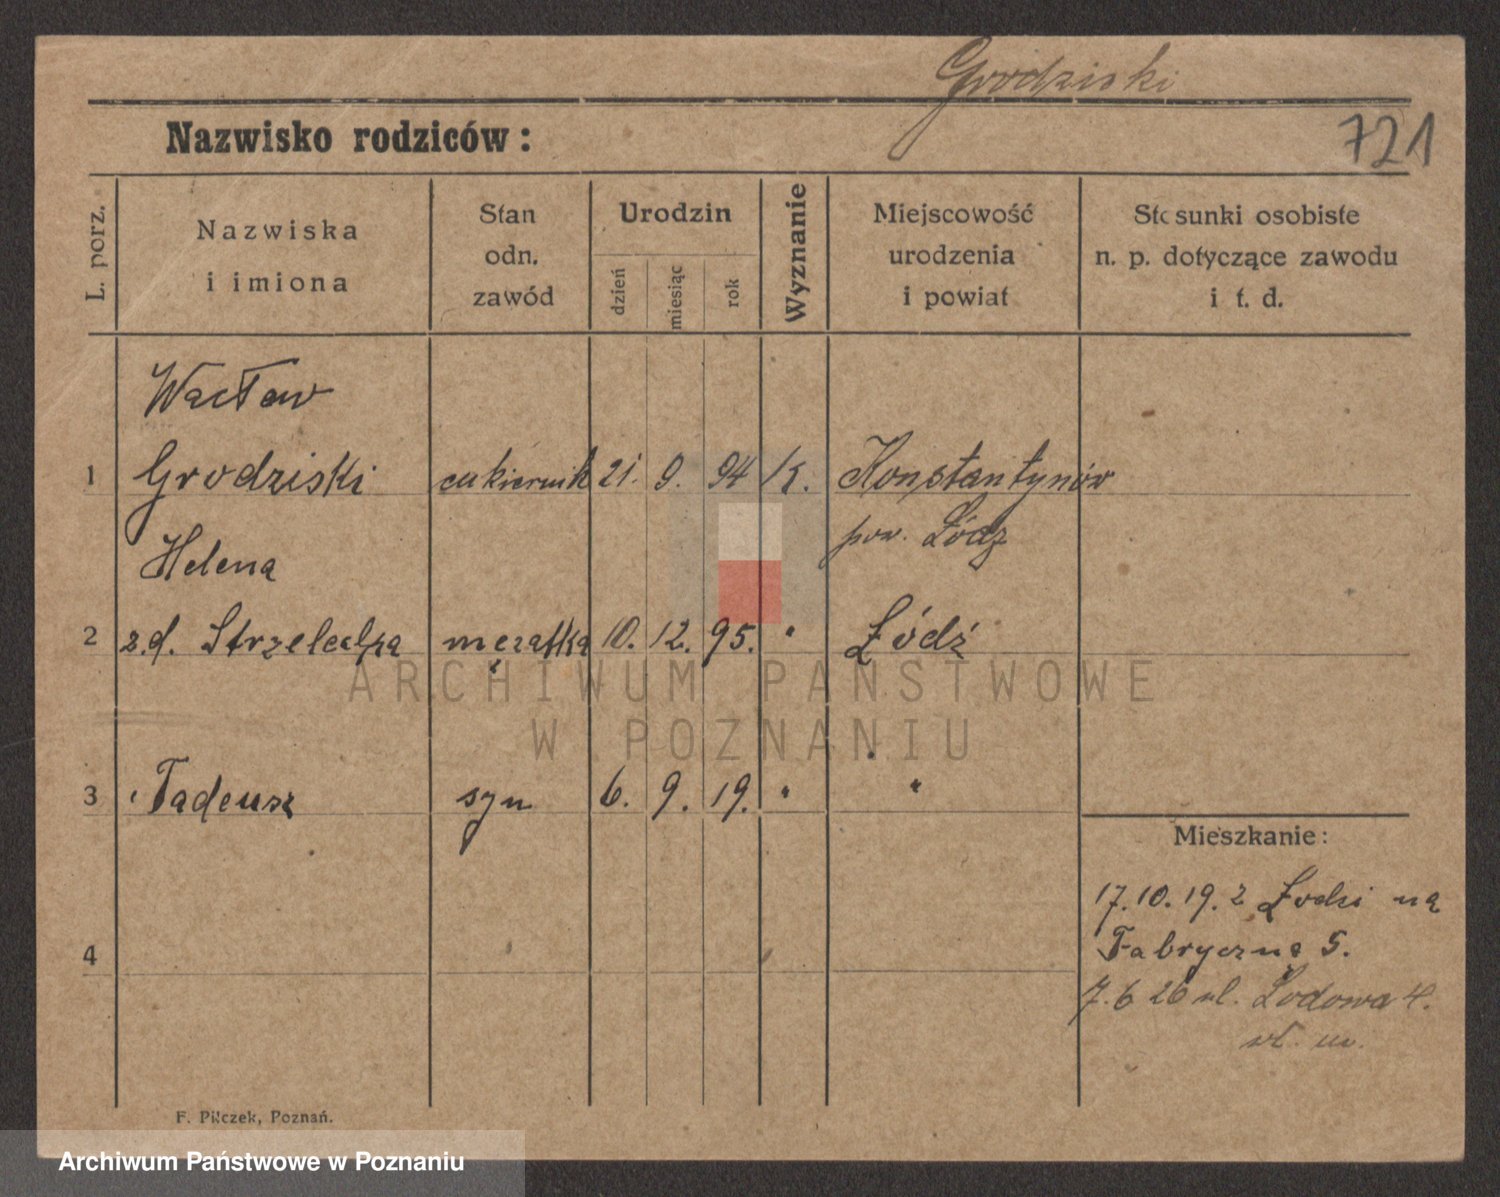 Grodziski
Nazwisko rodziców:
721
L. porz.
Nazwiska
i imiona
Stan
odn.
zawód
Urodzin
dzień
miesiąc
rok
Wyznanie
Miejscowość
urodzenia
i powiat
Stosunki osobiste
n. p. dotyczące zawodu
i t. d.
Wacław
1 Grodziski cukiernik 21. 9. 94 K. Konstantynów
pow. Łódz
Helena
2 z.d. Strzelecka mężatka 10. 12. 95. " Łódź
ARCHIWUM PAŃSTWOWE
W POZNANIU
3 Tadeusz syn 6. 9. 19. " "
Mieszkanie:
17.10.19. z Łodzi na
Fabryczna 5.
4
7.6 26 ul. Lodowa 4.
wł. m.
F. Pilczek, Poznań.
Archiwum Państwowe w Poznaniu